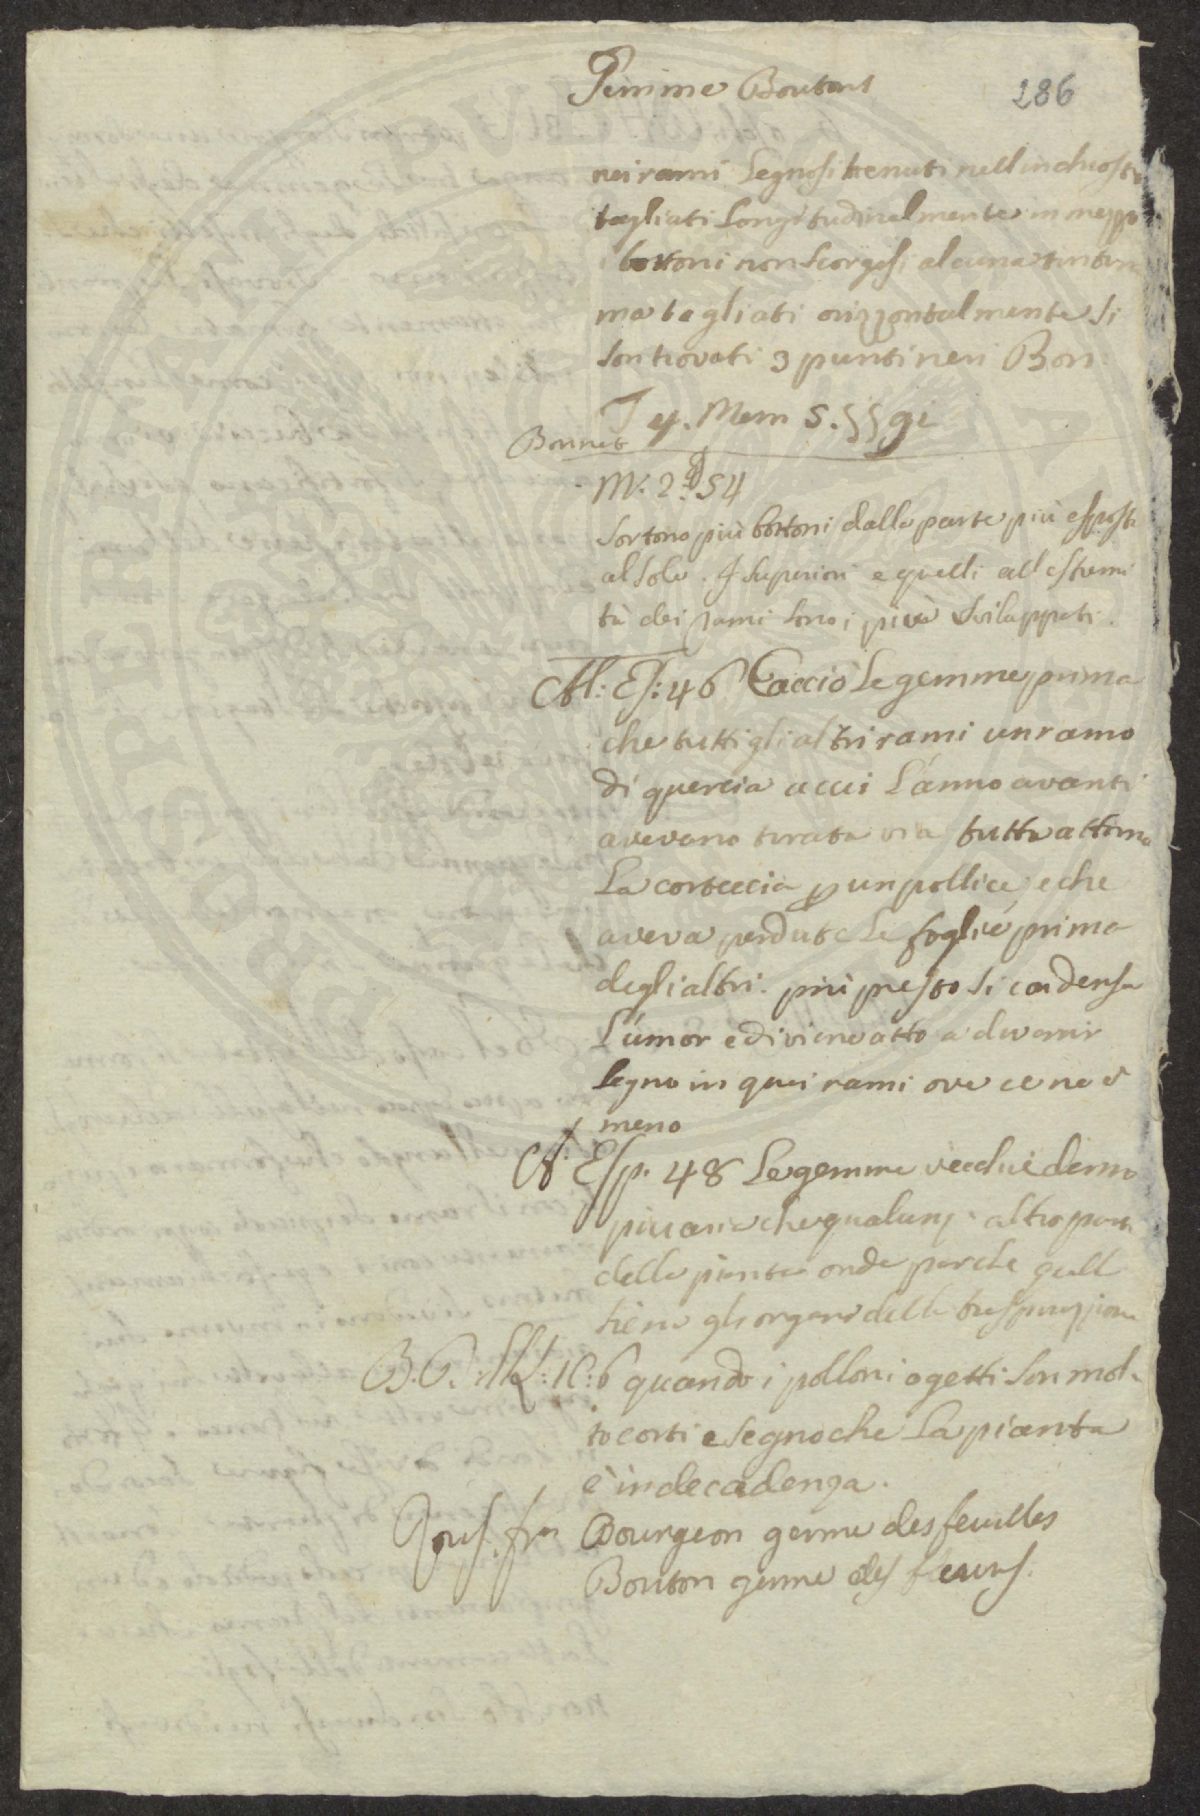 Gemme Boutons
286
nei rami Legnosi tenuti nell inchiostro
tagliati Longitudinalmente in mezzo
i bottoni non scorgesi alcuna tintura
ma tagliati orizzontalmente si
son trovati 3 punti neri Bon:
T 4. Mem 5. §§ 91
Bonnet
M: 2.d 54
Sortono più bottoni dalla parte più esposta
al sole. I superiori e quelli all estremi
tà dei rami sono i più sviluppati.
Al: Es: 46 Cacciò Le gemme prima
che tutti gli altri rami un ramo
di quercia a cui L'anno avanti
avevano tirata via tutta attorno
La corteccia p un pollice, e che
aveva perdute Le foglie prima
degli altri. più presto si condensa
L'umor e diviene atto a divenir
Legno in quei rami ove ce ne è
meno
A: Esp. 48 Le gemme vecchie danno
più aria che qualunq. altra parte
della pianta onde parche quell
tiene gli organi della traspirazione
B. C. : 6 quando i polloni o getti son mol-
to corti e segno che La pianta
è in decadenza.
Bourgeon germe des feuilles
Bouton germe des fleurs.